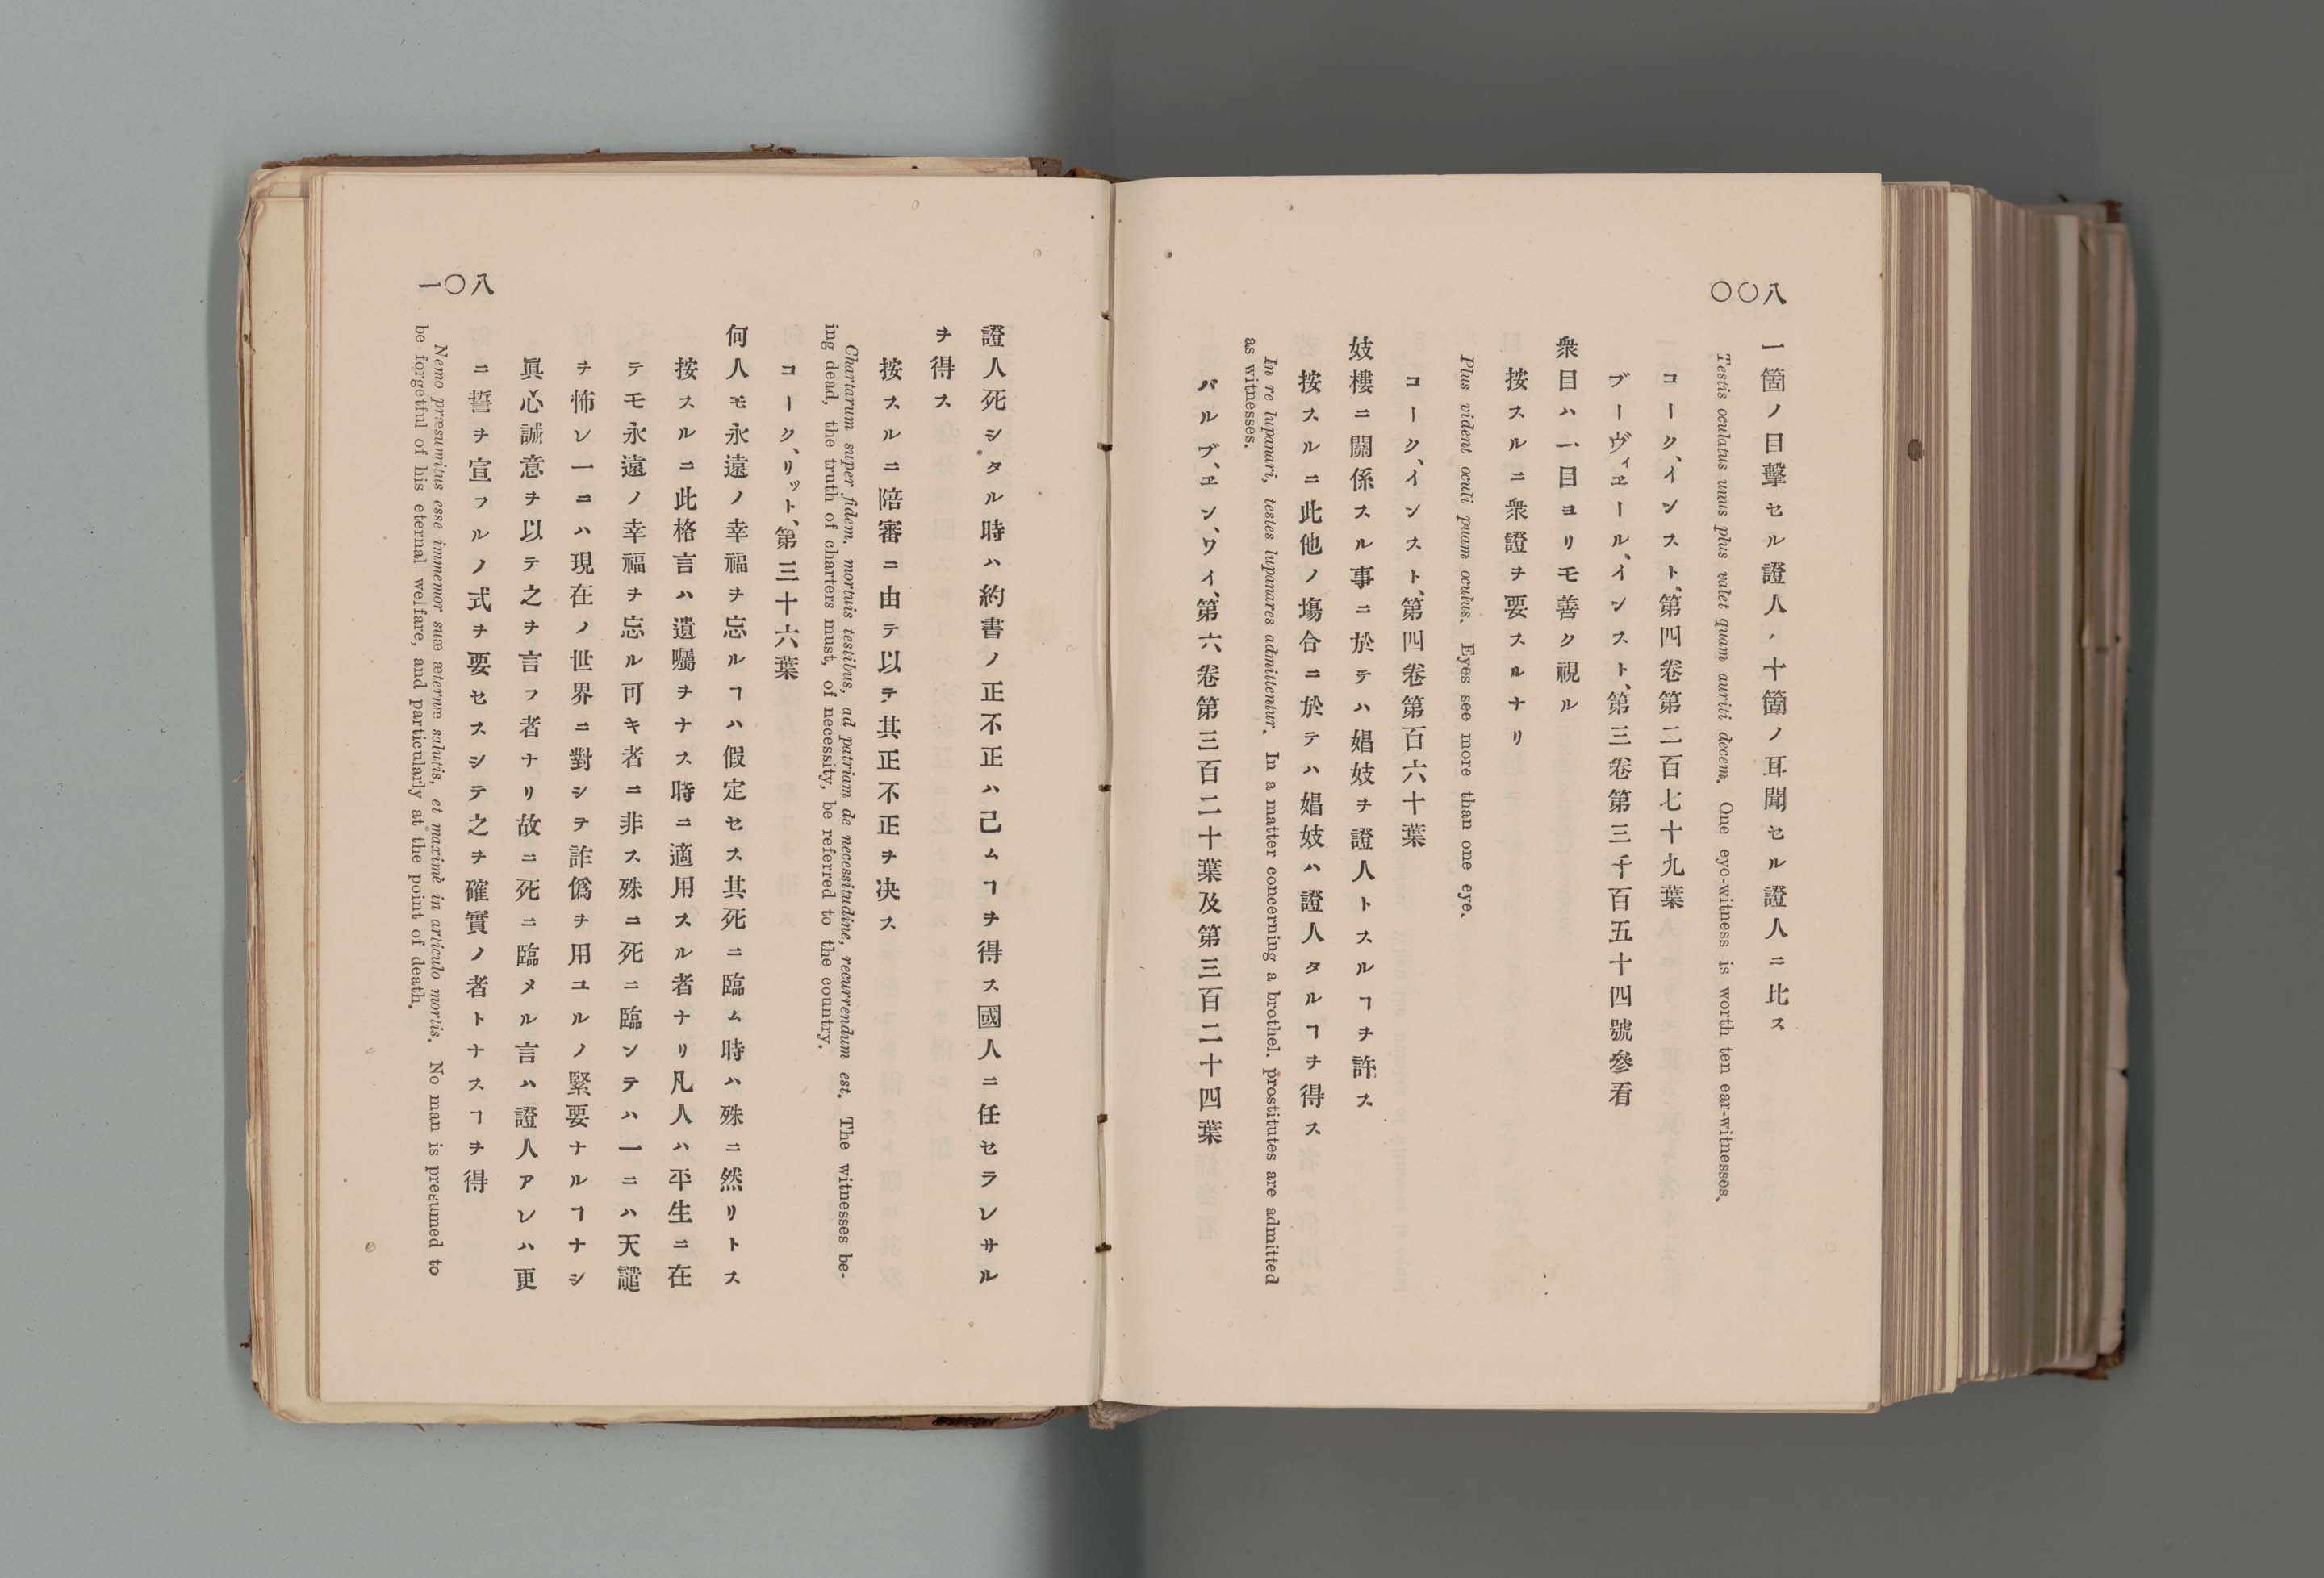 八〇〇
一箇ノ目擊セル證人ハ十箇ノ耳聞セル證人ニ比ス
Testis oculatus unus plus valet quam auriti decem. One eye-witness is worth ten ear-witnesses.
コーク、インスト、第四卷第二百七十九葉
ブーヴィヱール、インスト、第三卷第三千百五十四號參看
衆目ハ一目ヨリモ善ク視ル
按スルニ衆證ヲ要スルナリ
Plus vident oculi puam oculus. Eyes see more than one eye.
コーク、インスト、第四卷第百六十葉
妓樓ニ關係スル事ニ於テハ娼妓ヲ證人トスルヿヲ許ス
按スルニ此他ノ塲合ニ於テハ娼妓ハ證人タルヿヲ得ス
In re lupanari, testes lupanares admittentur. In a matter concerning a brothel. prostitutes are admitted
as witnesses.
バルブ、ヱン、ワイ、第六卷第三百二十葉及第三百二十四葉
證人死シタル時ハ約書ノ正不正ハ己ムヿヲ得ス國人ニ任セラレサル
ヲ得ス
按スルニ陪審ニ由テ以テ其正不正ヲ决ス
Chartarum super fidem, mortuis testibus, ad patriam de necessitudine, recurrendum est. The witnesses be-
ing dead, the truth of charters must, of necessity, be referred to the country.
コーク、リット、第三十六葉
何人モ永遠ノ幸福ヲ忘ルヿハ假定セス其死ニ臨ム時ハ殊ニ然リトス
按スルニ此格言ハ遺囑ヲナス時ニ適用スル者ナリ凡人ハ平生ニ在
テモ永遠ノ幸福ヲ忘ル可キ者ニ非ス殊ニ死ニ臨ンテハ一ニハ天譴
ヲ怖レ一ニハ現在ノ世界ニ對シテ詐僞ヲ用ユルノ緊要ナルヿナシ
眞心誠意ヲ以テ之ヲ言フ者ナリ故ニ死ニ臨メル言ハ證人アレハ更
ニ誓ヲ宣フルノ式ヲ要セスシテ之ヲ確實ノ者トナスヿヲ得
Nemo præsumitus esse immemor suæ æternæ salutis, et maximè in articulo mortis. No man is presumed to
be forgetful of his eternal welfare, and particularly at the point of death.
八〇一